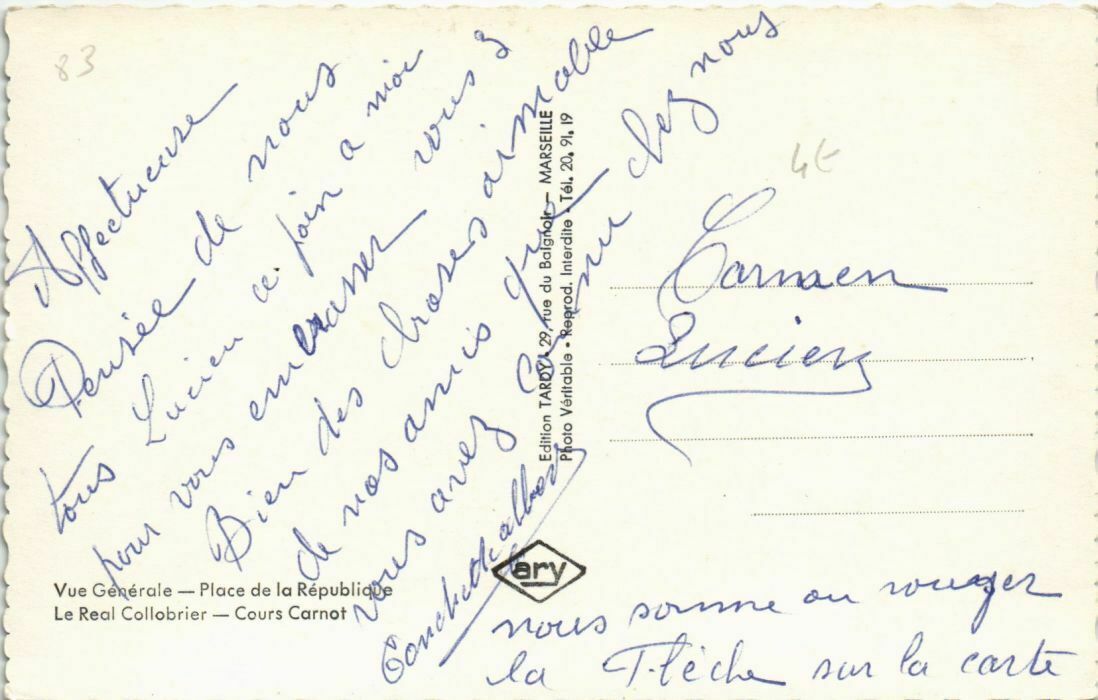 83
Affectueuse
Pensée de nous
tous Lucien ce join a moi
pour vous embrasser vous 3
Bien des choses aimable
de nos amis que
vous avez connu chez nous
4E
Carmen
Lucien
Edition TARDY • 29, rue du Baignoir — MARSEILLE
Photo Véritable • Reprod. Interdite • Tél. 20. 91. 19
ary
Vue Générale — Place de la République
Le Real Collobrier — Cours Carnot
nous somme au rouger
la Flèche sur la carte